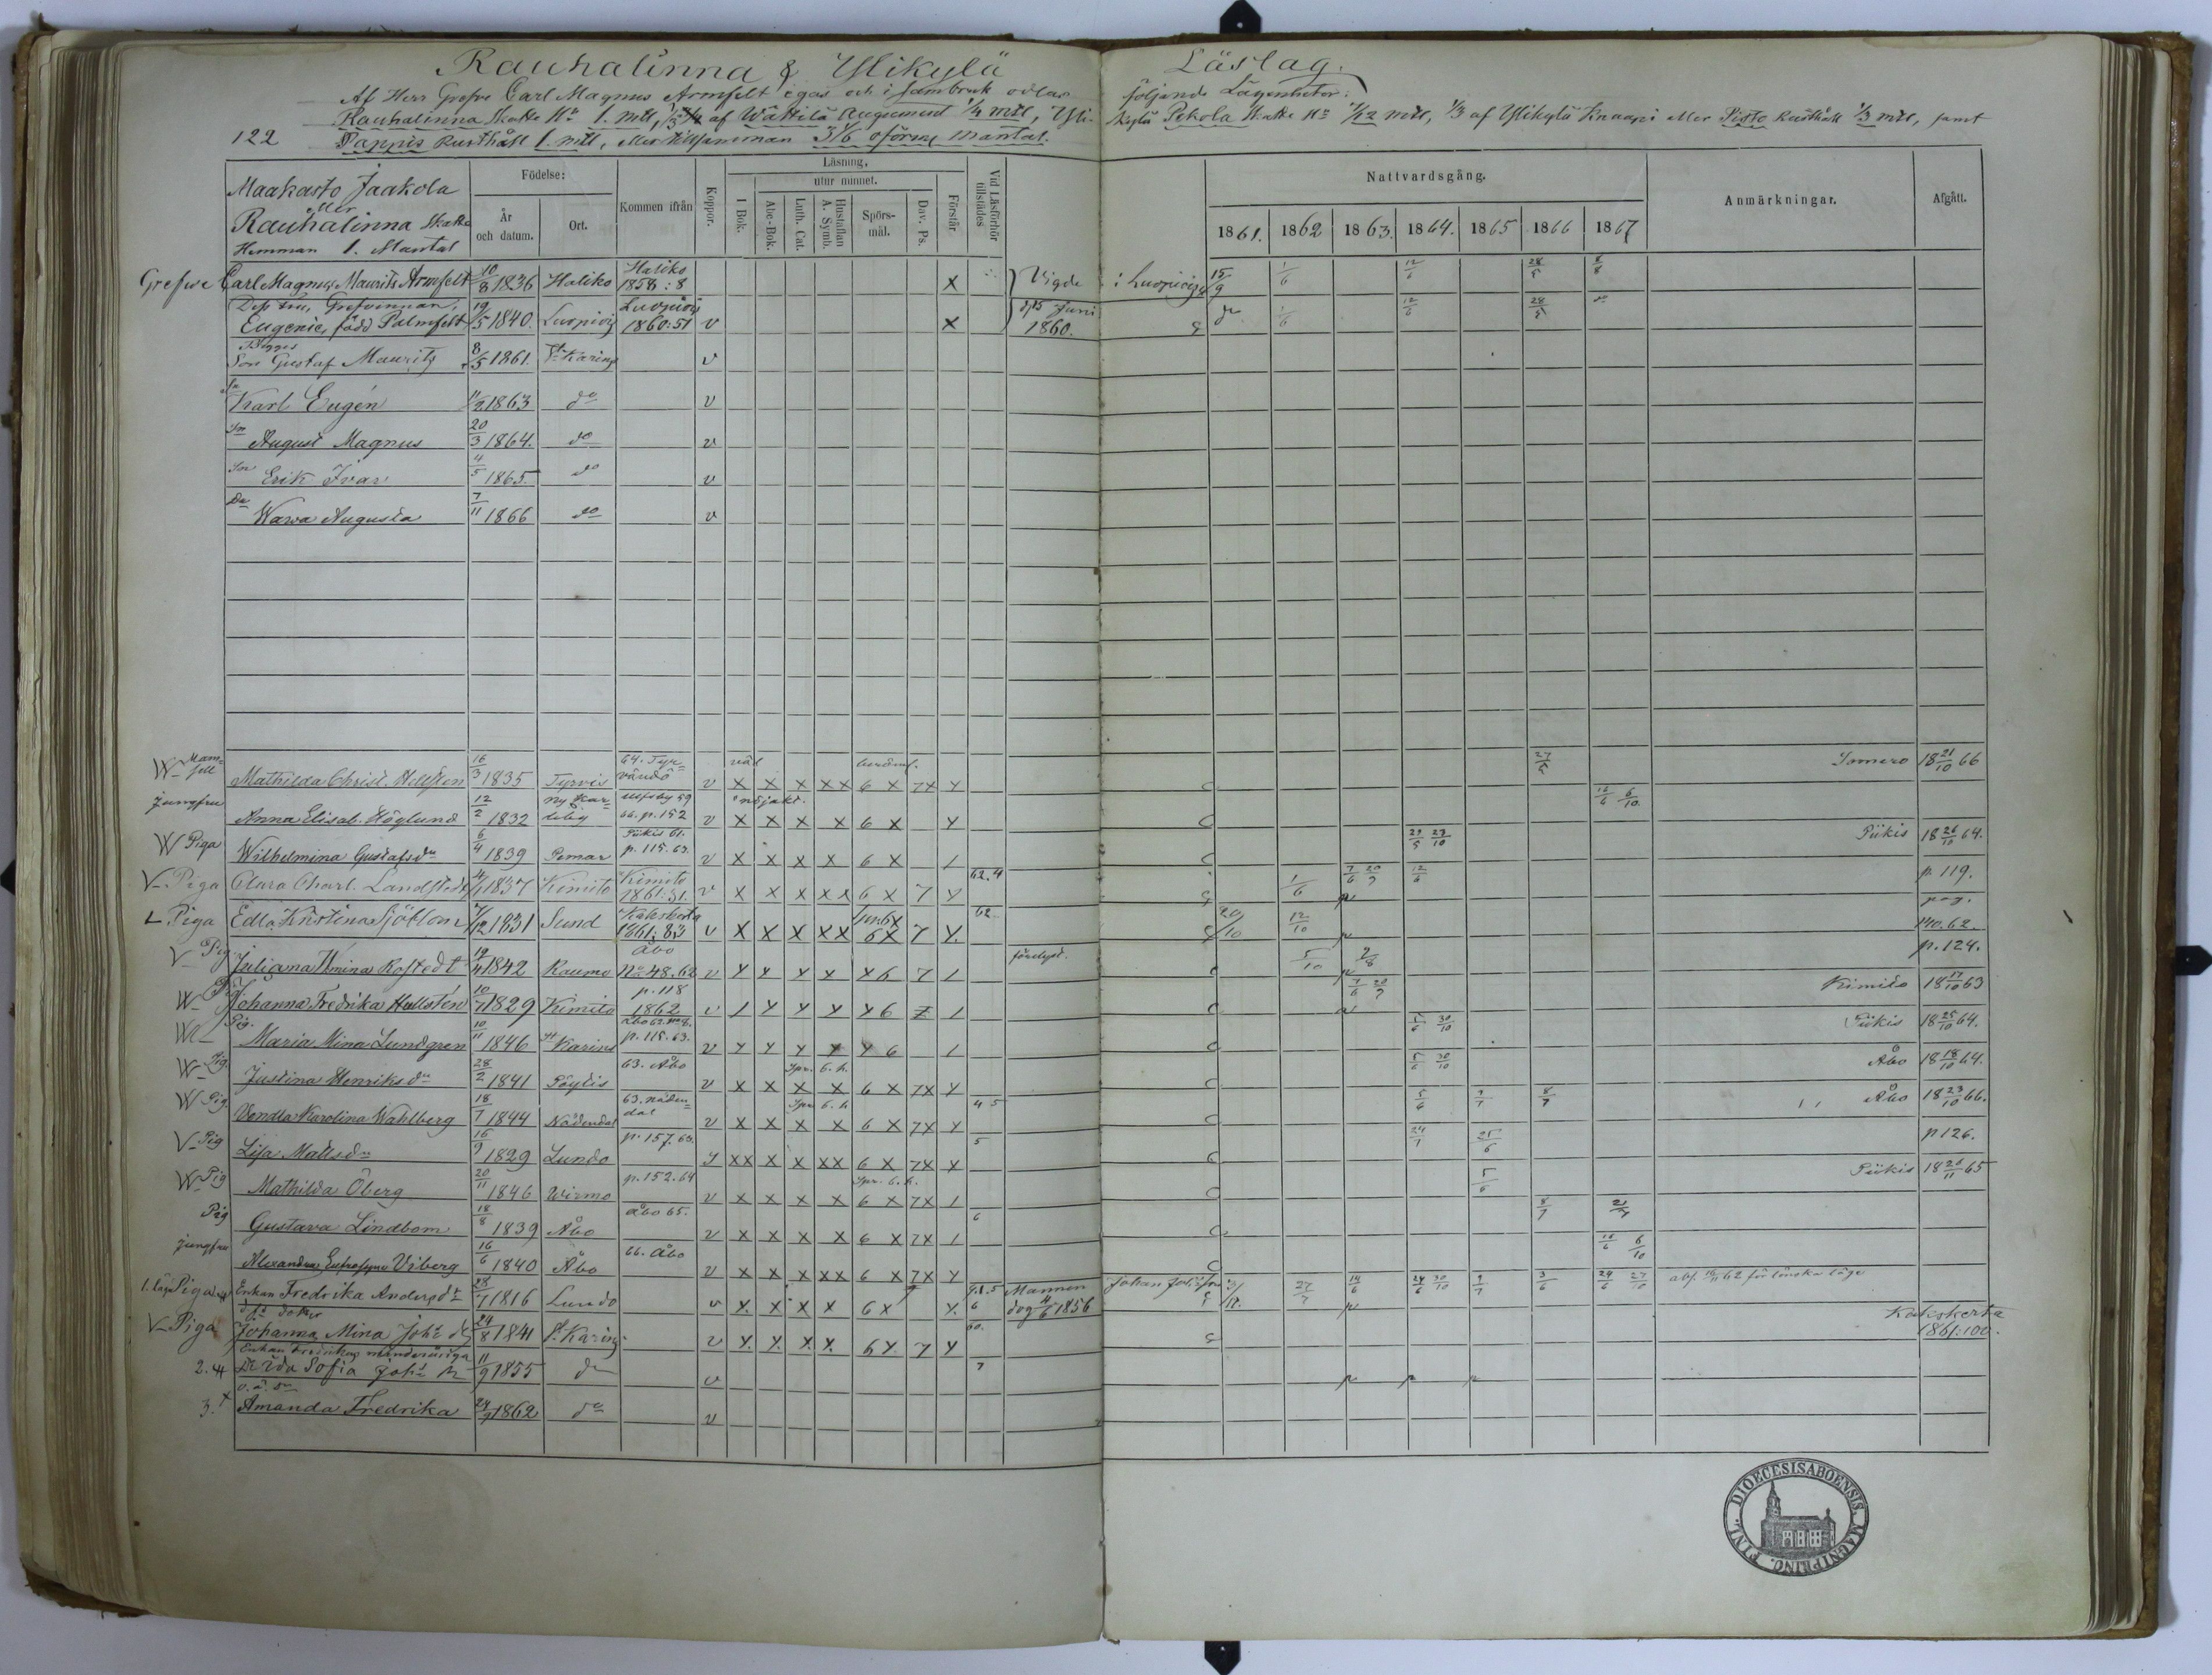 Rauhalinna & Ylikylä Läslag.
Af Herr Grefve Carl Magnus Armfelt egas och i sambruk odlas följande Lägenheter:
Rauhalinna Skatte No 1. mtl, 1/3 af Wättilä Augument 1/4 mtl, Yli-kylä Pekola Skatte No 7/12 mtl, 1/3 af Ylikylä Knaapi eller Pisto Rusthåll 1/3 mtl, samt
122 Pappis Rusthåll 1. mtl, eller tillsamman 3 1/6 oförm mantal.
Maakasto Jaakola
eller
Rauhalinna Skatte
Hemman 1. Mantal
Födelse:
År och datum.
Ort.
Kommen ifrån
Koppor.
Läsning.
utur minnet.
I Bok.
Abc-Bok.
Luth. Cat.
Hustaflan A. Symb.
Spörs-mål.
Dav. Ps.
Förstår
Vid Läsförhör tillstädes
Nattvardsgång.
1861. 1862 1863. 1864. 1865 1866 1867
Anmärkningar.
Afgått.
Grefve Carl Magnus Maurits Armfelt 10/8 1836 Haliko Haliko 1858:8 x Vigde i Luopiois 15/9 1/6 12/6 28/5 8/8
Dess fru, Grefvinnan,
Eugenie, född Palmfelt 19/5 1840. Luopiois Luopiois 1860:51 v x d. 15 Juni 1860. do 1/6 12/6 28/5 do
Begges
Son Gustaf Mauritz 8/5 1861. St Karins v
Sn Karl Eugén 11/2 1863 do v
Sn August Magnus 20/3 1864. do v
Sn Erik Ivar 4/5 1865. do v
Dr Wava Augusta 7/11 1866 do v
W Mamsell Mathilda Christ. Hellsten 16/3 1835 Tyrvis 64. Tyrvändö v väl x x x xx 6 x 7x Y 27/5 Somero 18 21/10 66
jungfru Anna Elisab. Höglund 12/2 1832 Ny Karleby 66. p. 152 v nöjakt. x x x x 6 x Y 16/6 6/10
W Piga Wilhelmina Gustafsdr 6/4 1839 Pemar Piikis 61. p. 115. 63. v x x x x 6 x / 29/5 23/10 Piikis 18 26/10 64.
V Piga Clara Charl. Landstedt 1837 Kimito Kimito 1861:51. v x x x xx 6 x 7 Y 62.4 1/6 7/6 20/9 12/6 p. 119.
Piga Edla Kristina Sjöblom 1831 Sund Kakskerta 1861:83 v x x x xx 6x 7 Y. 62 20/10 12/10 pag. 140. 62.
V Pig Juliana Wmina Rostedt 19/4 1842 Raumo Åbo No 48. 62 v Y x x x x6 7 / förelyst. 5/10 2/8 p. 124.
W Pig. Johanna Fredrika Hallstén 10/7 1829 Kimito p. 118 1862 v / Y Y Y Y6 7 / 7/6 20/9 Kimito 18 17/10 63
W Pig. Maria Mina Lundgren 10/11 1846 St Karins p. 115. 63. v Y Y Y Y Y 6 / 5/6 30/10 Piikis 18 25/10 64.
W Pig. Justina Henriksdr 28/2 1841 Pöytis 63. Åbo v x x x x 6 x 7x Y 5/6 30/10 Åbo 18 18/10 64.
W Pig. Vendla Karolina Wahlberg 18/7 1844 Nådendal 63. Nådendal v x x x x 6 x 7x Y 45 5/6 8/7 Åbo 18 23/10 66.
V Pig Lisa Mattsdr 16/9 1829 Lundo p. 157. 63. xx x x xx 6 x 7x Y 5 24/7 25/6 p 126.
W Pig Mathilda Öberg 20/11 1846 Wirmo p. 152. 64 v x x x x 6 x 7x / 5/6 Piikis 18 26/11 65
Pig Gustava Lindbom 18/8 1839 Åbo Åbo 65. v x x x x 6 x 7x / 6 8/7
jungfru Alexandra Eufrosyne Viberg 16/6 1840 Åbo 66. Åbo v x x x xx 6 x 7x Y 16/6 6/10
Piga Enkan Fredrika Andersdr 28/7 1816 Lundo v x. x x x 6x 7 Y. Mannen dog 11/6 1856 Johan 27/7 14/6 24/6 30/10 9/7 3/6 24/6 27/10
d:s dotter
V Piga Johanna Mina Johsdr 24/8 1841 St Karins v Y. Y. x x. 6Y. 7 Y 60. Kakskerta 1861:100.
Enkan Fredrikas minderåriga
2. Dr Ida Sofia 11/9 1855 do v 7
o. ä. dr
3. Amanda Fredrika 24/9 1862 do v
DIOECESIS ABOENSIS. MAGNI PRINC. FINL.